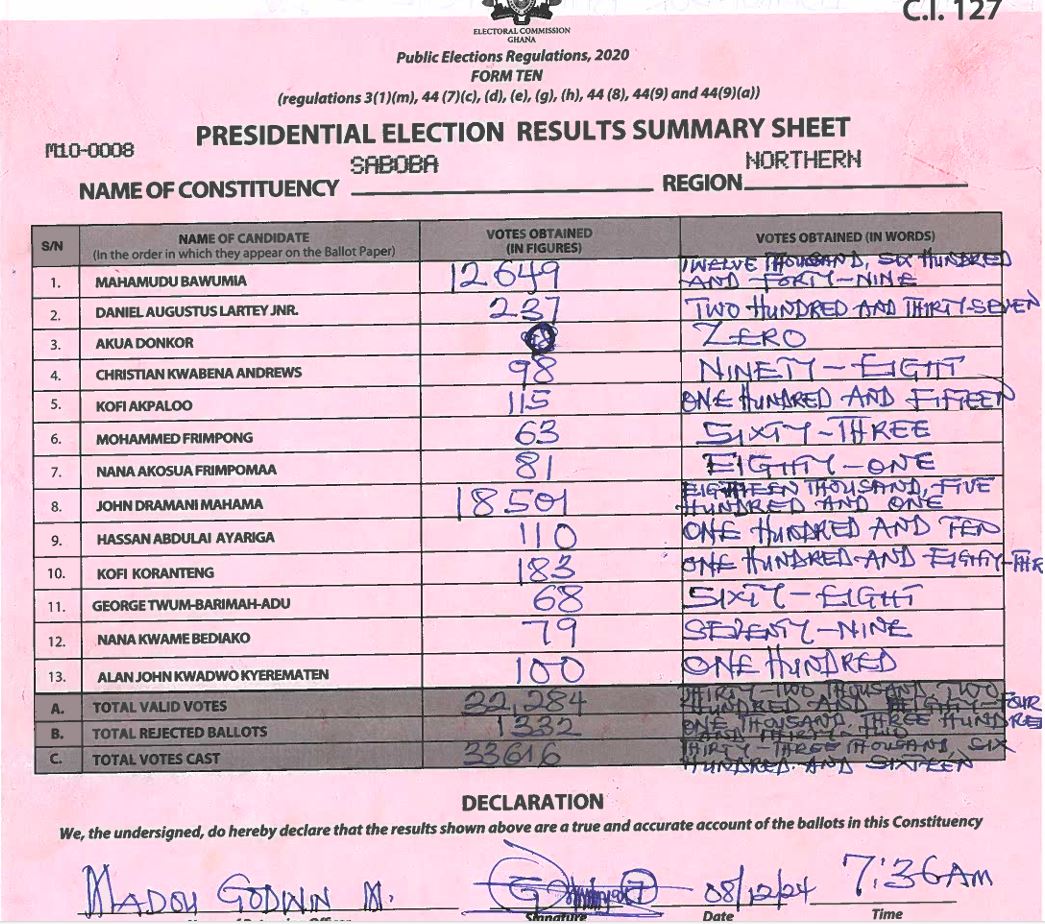 C.I. 127
ELECTORAL COMMISSION
GHANA
Public Elections Regulations, 2020
FORM TEN
(regulations 3(1)(m), 44 (7)(c), (d), (e), (g), (h), 44 (8), 44(9) and 44(9)(a))
PRESIDENTIAL ELECTION RESULTS SUMMARY SHEET
M10-0008
NAME OF CONSTITUENCY SABOBA REGION NORTHERN
S/N NAME OF CANDIDATE (In the order in which they appear on the Ballot Paper) VOTES OBTAINED (IN FIGURES) VOTES OBTAINED (IN WORDS)
1. MAHAMUDU BAWUMIA 12649 TWELVE THOUSAND, SIX HUNDRED AND FORTY-NINE
2. DANIEL AUGUSTUS LARTEY JNR. 237 TWO HUNDRED AND THIRTY-SEVEN
3. AKUA DONKOR ZERO
4. CHRISTIAN KWABENA ANDREWS 98 NINETY-EIGHT
5. KOFI AKPALOO 115 ONE HUNDRED AND FIFTEEN
6. MOHAMMED FRIMPONG 63 SIXTY-THREE
7. NANA AKOSUA FRIMPOMAA 81 EIGHTY-ONE
8. JOHN DRAMANI MAHAMA 18501 EIGHTEEN THOUSAND, FIVE HUNDRED AND ONE
9. HASSAN ABDULAI AYARIGA 110 ONE HUNDRED AND TEN
10. KOFI KORANTENG 183 ONE HUNDRED AND EIGHTY-THR
11. GEORGE TWUM-BARIMAH-ADU 68 SIXTY-EIGHT
12. NANA KWAME BEDIAKO 79 SEVENTY-NINE
13. ALAN JOHN KWADWO KYEREMATEN 100 ONE HUNDRED
A. TOTAL VALID VOTES 32,284 THIRTY-TWO THOUSAND TWO HUNDRED AND EIGHTY-FOUR
B. TOTAL REJECTED BALLOTS 1332 ONE THOUSAND, THREE HUNDRED AND THIRTY-TWO
C. TOTAL VOTES CAST 33616 THIRTY-THREE THOUSAND, SIX HUNDRED AND SIXTEEN
DECLARATION
We, the undersigned, do hereby declare that the results shown above are a true and accurate account of the ballots in this Constituency
GODWIN M. 08/12/24 7:36AM
Signature Date Time